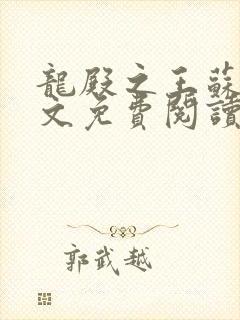 龍殿之王蘇
文免費閱讀
郭武越